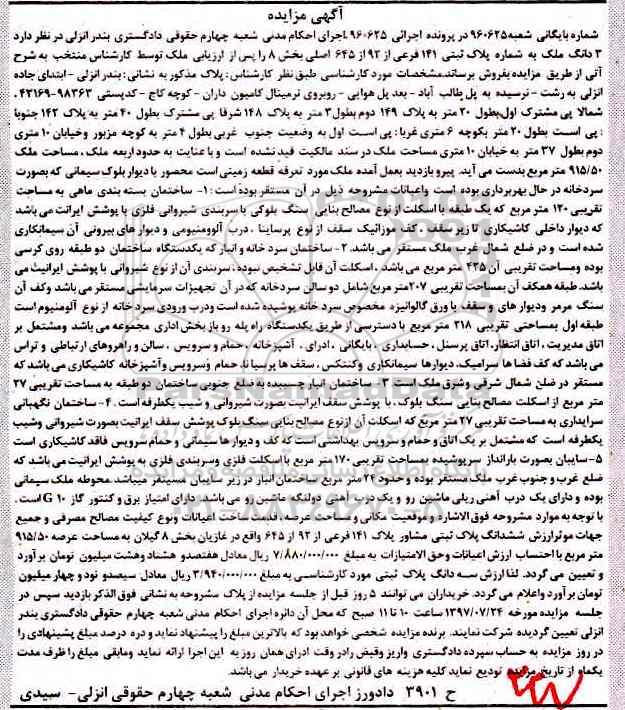 آگهی مزایده
شماره بایگانی شعبه ۹۶۰۶۲۵ در پرونده اجرائی ۹۶۰۶۲۵ اجرای احکام مدنی شعبه چهارم حقوقی دادگستری بندر انزلی در نظر دارد
۳ دانگ ملک به شماره پلاک ثبتی ۱۴۱ فرعی از ۹۲ از ۶۴۵ اصلی بخش ۸ را پس از ارزیابی ملک توسط کارشناس منتخب به شرح
آتی از طریق مزایده بفروش برساند. مشخصات مورد کارشناسی طبق نظر کارشناس: پلاک مذکور به نشانی: بندر انزلی - ابتدای جاده
انزلی به رشت - نرسیده به پل طالب آباد - بعد پل هوایی - روبروی ترمینال کامیون داران - کوچه کاج - کدپستی ۹۸۳۶۳-۴۳۱۶۹
شمالا پی مشترک اول بطول ۲۰ متر به پلاک ۱۴۹ دوم بطول ۳ متر به پلاک ۱۴۸ شرقا پی مشترک بطول ۴۰ متر به پلاک ۱۴۲ جنوبا
: پی است بطول ۲۰ متر بکوچه ۶ متری غربا: پی است اول به وضعیت جنوب غربی بطول ۴ متر به کوچه مزبور و خیابان ۱۰ متری
دوم بطول ۳۷ متر به خیابان ۱۰ متری مساحت ملک در سند مالکیت قید نشده است و با عنایت به حدود اربعه ملک، مساحت ملک
۹۱۵/۵۰ متر مربع بدست می آید. پیرو بازدید بعمل آمده ملک مورد تعرفه قطعه زمینی است محصور با دیوار بلوک سیمانی که بصورت
سردخانه در حال بهره برداری بوده است واعیانات مشروحه ذیل در آن مستقر بوده است: ۱- ساختمان بسته بندی ماهی به مساحت
تقریبی ۱۲۰ متر مربع که یک طبقه با اسکلت از نوع مصالح بنایی سنگ بلوکی با سربندی شیروانی فلزی با پوشش ایرانت می باشد
که دیوار داخلی کاشیکاری تا زیر سقف، کف موزائیک سقف از نوع پرساینا، درب آلوومنیومی و دیوار های بیرونی آن سیمانکاری
شده است و در ضلع شمال غرب ملک مستقر می باشد. ۲- ساختمان سرد خانه و انبار که یکدستگاه ساختمان دو طبقه روی کرسی
بوده ومساحت تقریبی آن ۴۲۵ متر مربع می باشد، اسکلت آن قابل تشخیص نبوده، سربندی آن از نوع شیروانی با پوشش ایرانیت می
باشد. طبقه همکف آن بمساحت تقریبی ۲۰۷ متر مربع شامل دو سالن سردخانه که در آن تجهیزات سرمایشی مستقر می باشد وکف آن
سنگ مرمر ودیوار های و سقف با ورق گالوانیزه مخصوص سرد خانه پوشیده شده است ودرب ورودی سرد خانه از نوع آلومنیوم است
طبقه اول بمساحتی تقریبی ۲۱۸ متر مربع با دسترسی از طریق یکدستگاه راه پله رو باز بخش اداری مجموعه می باشد ومشتمل بر
اتاق مدیریت، اتاق انتظار، اتاق پرسنل، حسابداری، بایگانی، ادرای، آشپزخانه، حمام و سرویس، سالن و راهروهای ارتباطی و تراس
می باشد که کف فضا ها سرامیک، دیوارها سیمانکاری وکنتکس، سقف ها پرسیانا، حمام وسرویس وآشپزخانه کاشیکاری می باشد که
مستقر در ضلن شمال شرقی وشرق ملک است ۳- ساختمان انبار چسبیده به ضلع جنوبی ساختمان دو طبقه به مساحت تقریبی ۲۷
متر مربع از اسکلت مصالح بنایی سنگ بلوک، با پوشش سقف ایرانیت بصورت شیروانی و شیب یکطرفه است. ۴- ساختمان نگهبانی
سرایداری به مساحت تقریبی ۲۷ متر مربع که اسکلت آن از نوع مصالح بنایی سنگ بلوک پوشش سقف ایرانیت بصورت شیروانی وشیب
یکطرفه است که مشتمل بر یک اتاق وحمام و سرویس بهداشتی است که کف و دیوار ها سیمانی و حمام وسرویس فاقد کاشیکاری است
۵- سایبان بصورت بارانداز سرپوشیده بمساحت تقریبی ۱۷۰ متر مربع با اسکلت فلزی وسربندی فلزی به پوشش ایرانیت می باشد که
ضلع غرب و جنوب غرب ملک مستقر بوده و حدود ۲۴ متر مربع ساختمان انبار در زیر سایبان مستقر میباشد. محوطه ملک سیمانی
بوده و دارای یک درب آهنی ریلی ماشین رو و یک درب آهنی دولنگه ماشین رو می باشد. دارای امتیاز برق و کنتور گاز G ۱۰ است.
با توجه به موارد مشروحه فوق الاشاره و موقعیت مکانی و مساحت عرصه، قدمت ساخت اعیانات ونوع کیفیت مصالح مصرفی و جمیع
جهات موثر ارزش ششدانگ پلاک ثبتی مشاور پلاک ۱۴۱ فرعی از ۹۲ از ۶۴۵ واقع در غازیان بخش ۸ گیلان به مساحت عرصه ۹۱۵/۵۰
متر مربع با احتساب ارزش اعیانات وحق الامتیازات به مبلغ ۷/۸۸۰/۰۰۰/۰۰۰ ریال معادل هفتصدو هشتاد وهشت میلیون تومان برآورد
و تعیین می گردد. لذا ارزش سه دانگ پلاک ثبتی مورد کارشناسی به مبلغ ۳/۹۴۰/۰۰۰/۰۰۰ ریال معادل سیصدو نود و چهار میلیون
تومان برآورد واعلام می گردد. خریداران می توانند ۵ روز قبل از جلسه مزایده از پلاک مشروحه به نشانی فوق الذکر بازدید سپس در
جلسه مزایده مورخه ۱۳۹۷/۰۷/۲۴ ساعت ۱۰ تا ۱۱ صبح که محل آن دائره اجرای احکام مدنی شعبه چهارم حقوقی دادگستری بندر
انزلی تعیین گردیده شرکت نمایند. برنده مزایده شخصی خواهد بود که بالاترین مبلغ را پیشنهاد نماید و ده درصد مبلغ پیشنهادی را
در روز مزایده به حساب سپرده دادگستری واریز وقبض رادر وقت ادرای همان روز به این اجرا ارائه نماید ومابقی مبلغ را ظرف مدت
یکماه از تاریخ مزایده تودیع نماید کلیه هزینه های قانونی بر عهده خریدار می باشد.
ح ۳۹۰۱ دادورز اجرای احکام مدنی شعبه چهارم حقوقی انزلی- سیدی